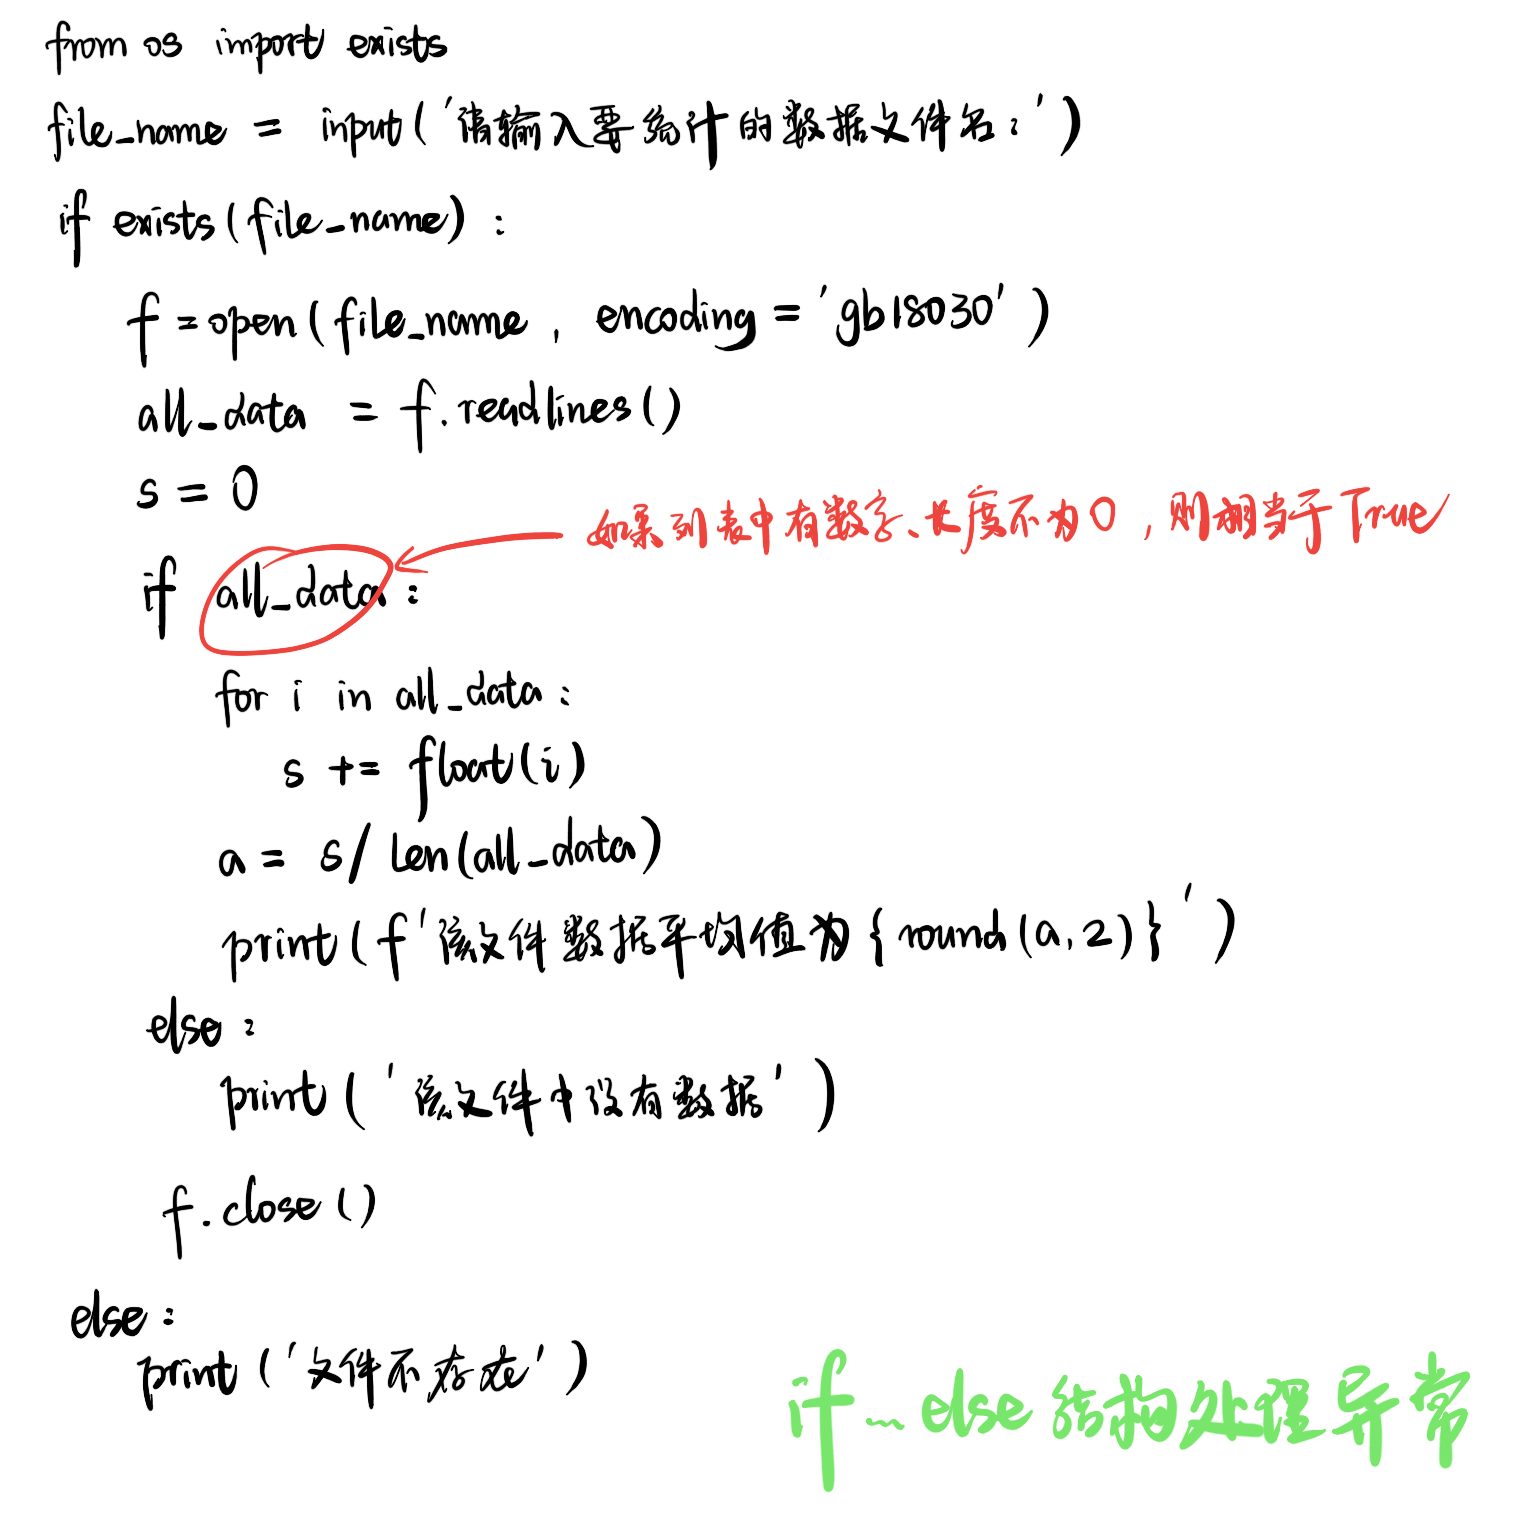 from os import exists
file_name = input('请输入要统计的数据文件名:')
if exists(file_name):
f=open(file_name, encoding='gb18030')
all_data = f.readlines()
s = 0
如果列表中有数字、长度不为0,则相当于True
if all_data:
for i in all_data:
s += float(i)
a = s/len(all_data)
print(f'该文件数据平均值为{round(a,2)}')
else:
print('该文件中没有数据')
f.close()
else:
print('文件不存在')
if…else 结构处理异常